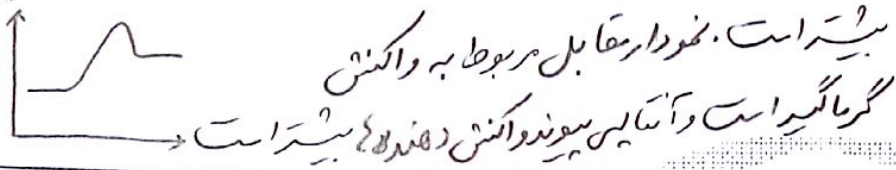 بیشتر است. نمودار مقابل مربوط به واکنش
گرماگیر است و آنتالپی پیوند واکنش دهنده‌ها بیشتر است